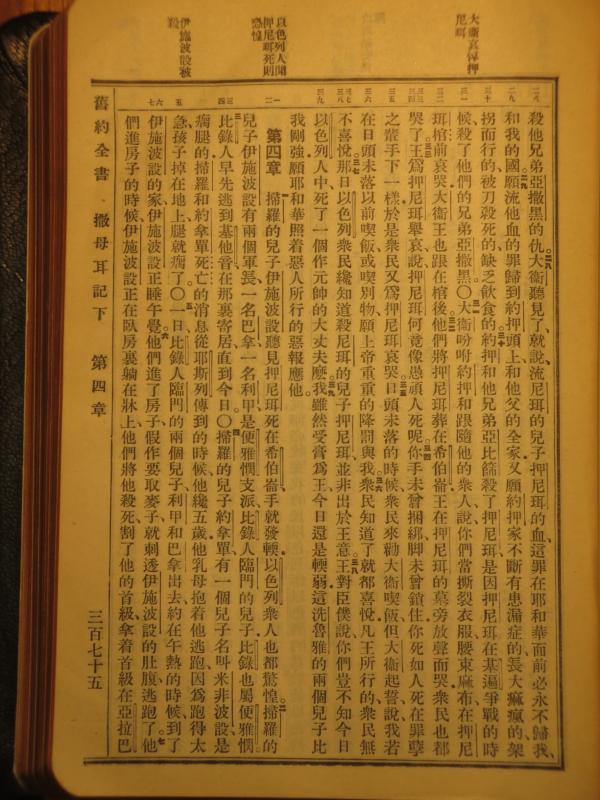 大衛哀悼押
尼珥
以色列人聞
押尼珥死則
恐惶
伊施波設被
殺
二八
二九
三十
三一
三二
三三
三四
三五
三六
三七
三八
三九
一
二
三
四
五
六
七
殺他兄弟亞撒黑的仇大衛聽見了就說流尼珥的兒子押尼珥的血這罪在耶和華面前必永不歸我
和我的國願流他血的罪歸到約押頭上和他父的全家又願約押家不斷有患漏症的長大痲瘋的架
拐而行的被刀殺死的缺乏飲食的約押和他兄弟亞比篩殺了押尼珥是因押尼珥在基遍爭戰的時
候殺了他們的兄弟亞撒黑〇大衛吩咐約押和跟隨他的衆人說你們當撕裂衣服腰束麻布在押尼
珥棺前哀哭大衛王也跟在棺後他們將押尼珥葬在希伯崙王在押尼珥的墓旁放聲而哭衆民也都
哭了王爲押尼珥舉哀說押尼珥何竟像愚頑人死呢你手未曾捆綁脚未曾鎖住你死如人死在罪孽
之輩手下一樣於是衆民又爲押尼珥哀哭日頭未落的時候衆民來勸大衛喫飯但大衛起誓說我若
在日頭未落以前喫飯或喫別物願上帝重重的降罰與我衆民知道了就都喜悅凡王所行的衆民無
不喜悅那日以色列衆民纔知道殺尼珥的兒子押尼珥並非出於王意王對臣僕說你們豈不知今日
以色列人中死了一個作元帥的大丈夫麼我雖然受膏爲王今日還是輭弱這洗魯雅的兩個兒子比
我剛強願耶和華照着惡人所行的惡報應他
第四章 掃羅的兒子伊施波設聽見押尼珥死在希伯崙手就發輭以色列衆人也都驚惶掃羅的
兒子伊施波設有兩個軍長一名巴拿一名利甲是便雅憫支派比錄人臨門的兒子比錄也屬便雅憫
比錄人早先逃到基他音在那裏寄居直到今日〇掃羅的兒子約拿單有一個兒子名叫米非波設是
瘸腿的掃羅和約拿單死亡的消息從耶斯列傳到的時候他纔五歲他乳母抱着他逃跑因爲跑得太
急孩子掉在地上腿就瘸了〇一日比錄人臨門的兩個兒子利甲和巴拿出去約在午熱的時候到了
伊施波設的家伊施波設正睡午覺他們進了房子假作要取麥子就刺透伊施波設的肚腹逃跑了他
們進房子的時候伊施波設正在臥房裏躺在牀上他們將他殺死割了他的首級拿着首級在亞拉巴
舊約全書 撒母耳記下 第四章 三百七十五